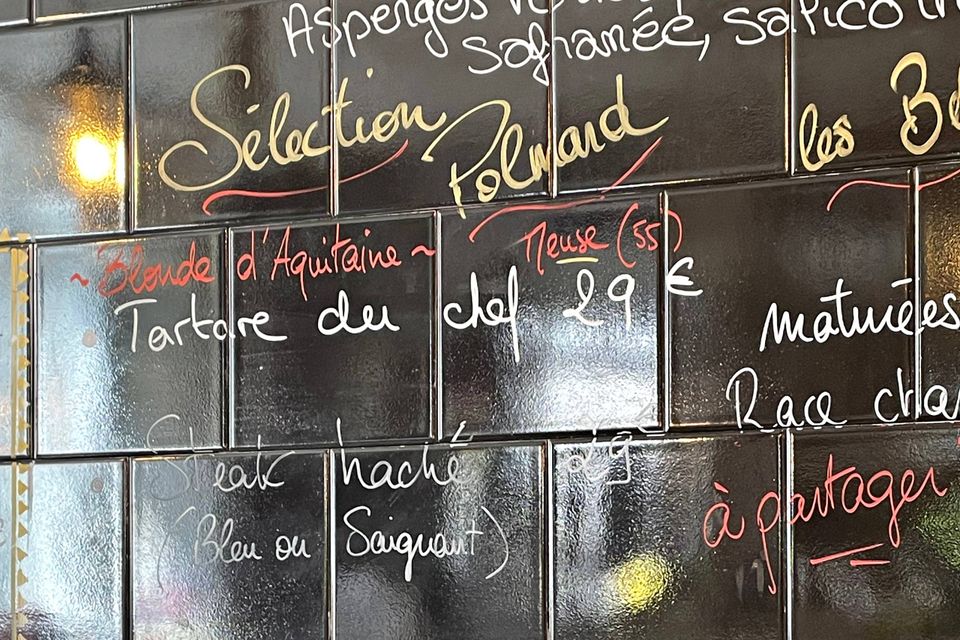 Asperges
Safranée, sapico
Sélection Polmard
les
~ Blonde d'Aquitaine ~
Meuse (55)
Tartare du chef 29 €
maturées
Race cha
Steak haché 29
(Bleu ou Saignant)
à partager